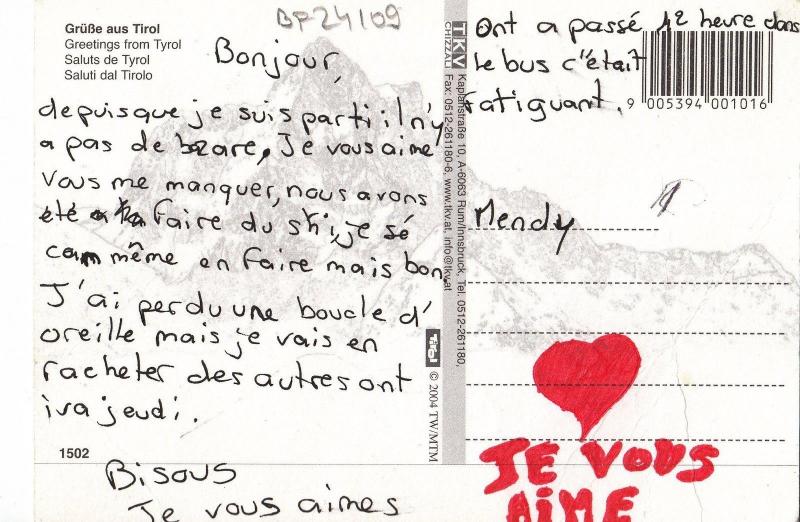 BP24109
Grüße aus Tirol
Greetings from Tyrol
Saluts de Tyrol
Saluti dal Tirolo
Bonjour,
depuisque je suis parti il n'y
a pas de bazare, Je vous aime
Vous me manquer, nous avons
été faire du ski, je sé
cam même en faire mais bon.
J'ai perdu une boucle d'
oreille mais je vais en
racheter des autres ont
iva jeudi.
1502
Bisous
Je vous aimes
TKV
CHIZZALI
Kaplanstraße 10, A-6063 Rum/Innsbruck, Tel. 0512-261180,
Fax: 0512-261180-6, www.tkv.at, info@tkv.at
Tirol
© 2004 TW/MTM
Ont a passé 12 heure dans
Le bus c'était
Fatiguant.
9 005394 001016
Mendy
JE VOUS
AIME